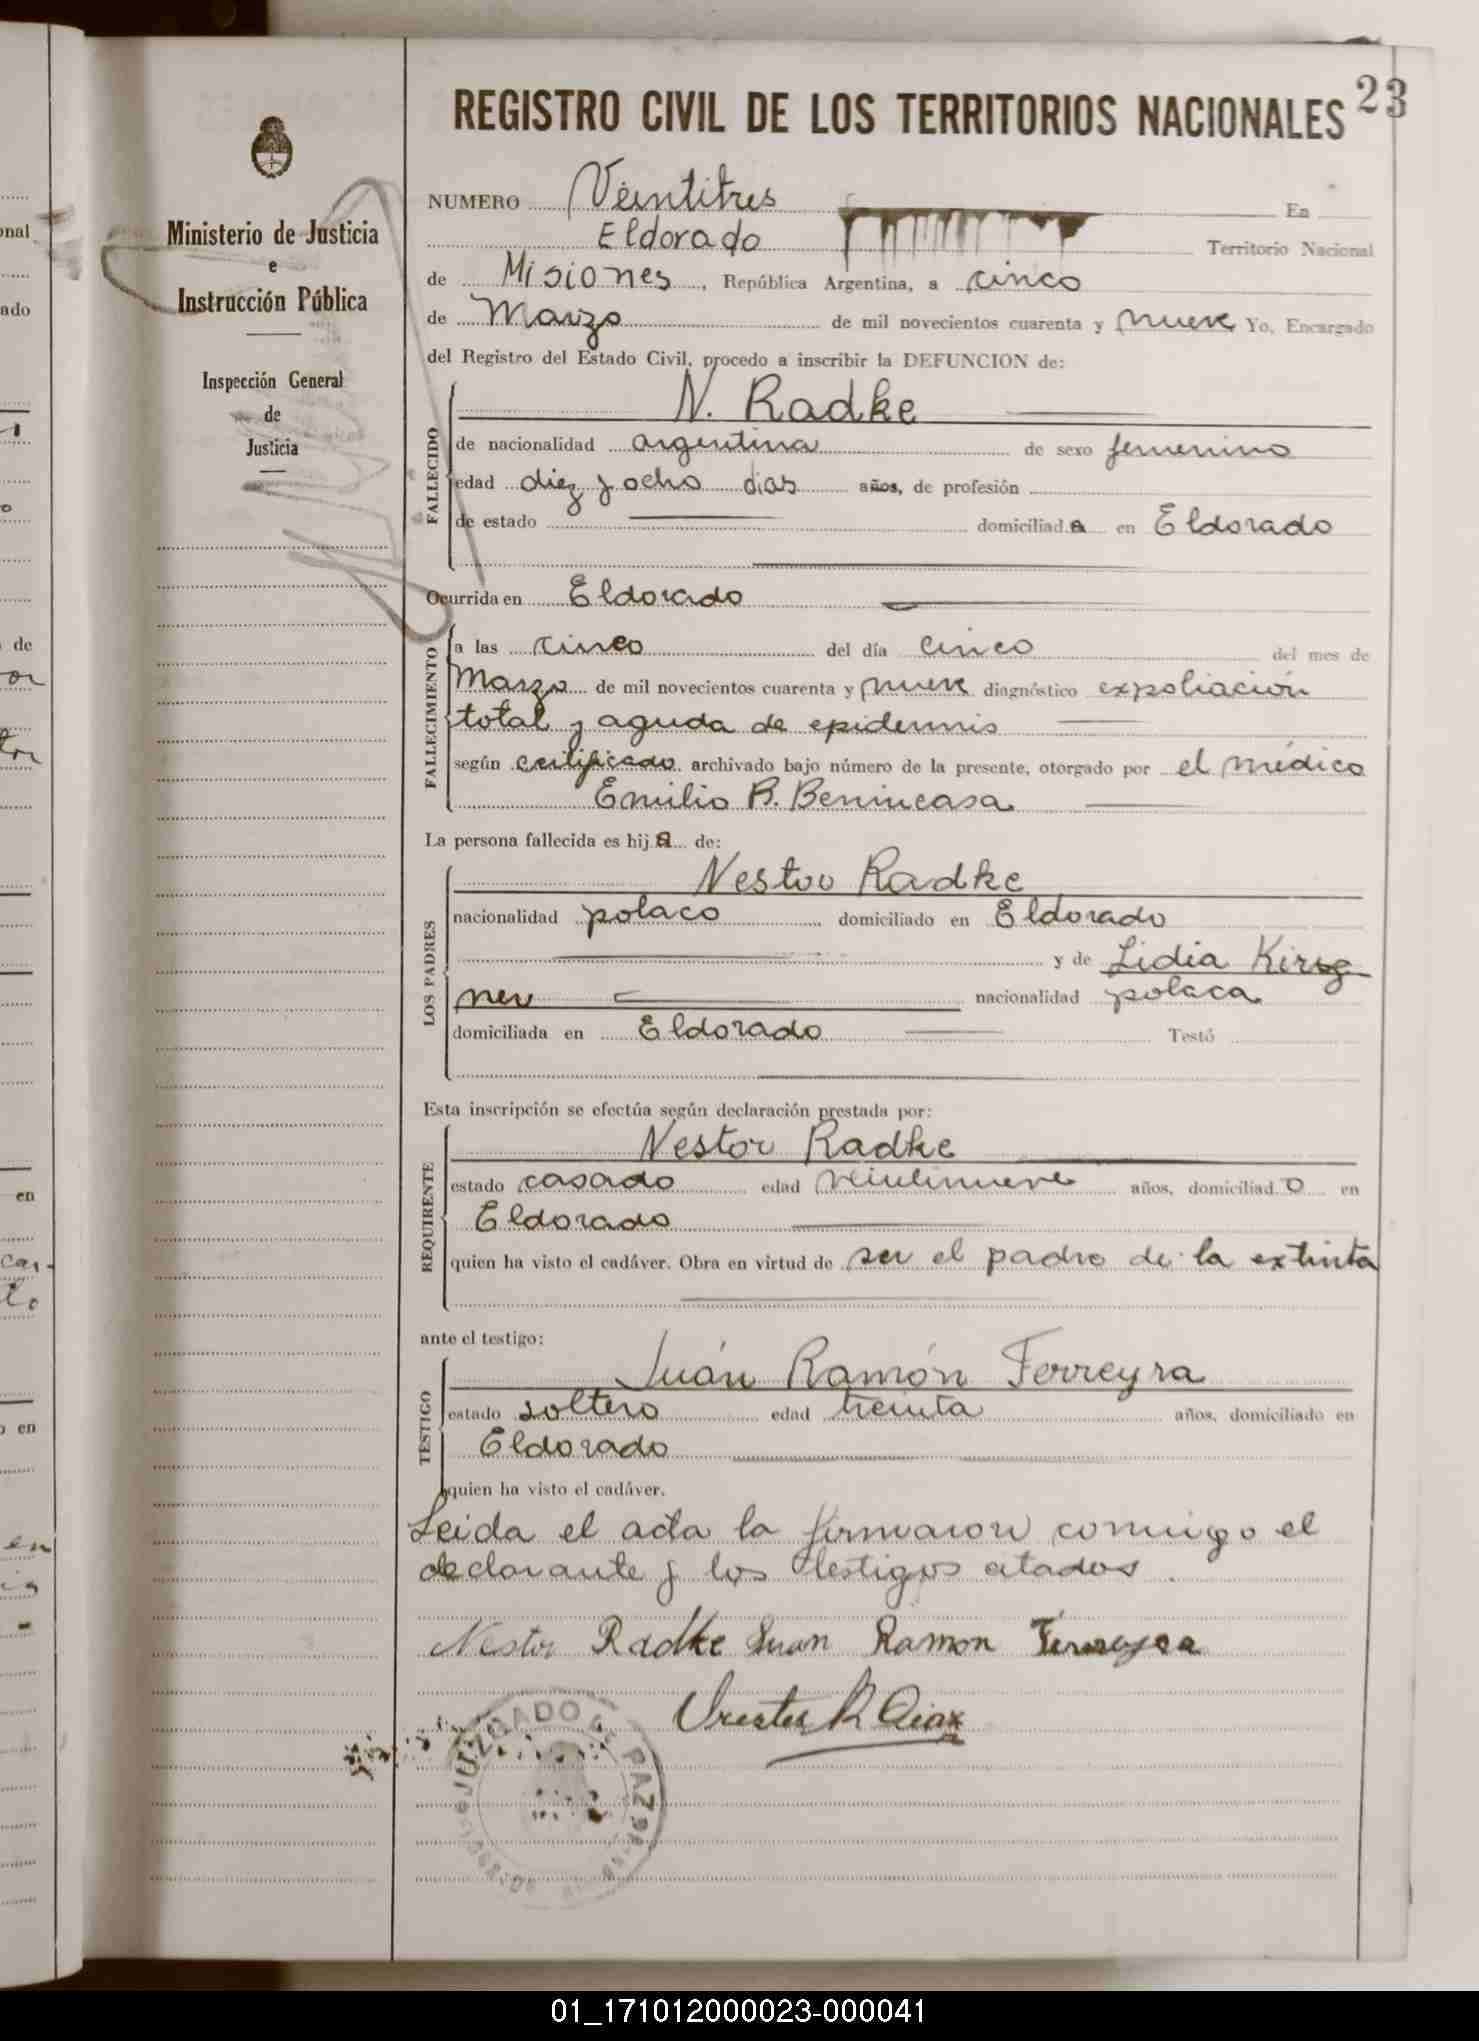 23
REGISTRO CIVIL DE LOS TERRITORIOS NACIONALES
Ministerio de Justicia
e
Instrucción Pública
Inspección General
de
Justicia
NUMERO Veintitres En
Eldorado Territorio Nacional
de Misiones, República Argentina, a cinco
de Marzo de mil novecientos cuarenta y nueve Yo, Encargado
del Registro del Estado Civil, procedo a inscribir la DEFUNCION de:
FALLECIDO
N. Radke
de nacionalidad argentina de sexo femenino
edad diez y ocho dias años, de profesión
de estado domiciliada en Eldorado
Ocurrida en Eldorado
FALLECIMIENTO
a las cinco del día cinco del mes de
Marzo de mil novecientos cuarenta y nueve diagnóstico expoliación
total y aguda de epidermis
según certificado archivado bajo número de la presente, otorgado por el médico
Emilio B. Benincasa
La persona fallecida es hija de:
LOS PADRES
Nestor Radke
nacionalidad polaco domiciliado en Eldorado
y de Lidia Kirsg
ner nacionalidad polaca
domiciliada en Eldorado Testó
Esta inscripción se efectúa según declaración prestada por:
REQUIRENTE
Nestor Radke
estado casado edad veintinueve años, domiciliado en
Eldorado
quien ha visto el cadáver. Obra en virtud de ser el padre de la extinta
ante el testigo:
TESTIGO
Juán Ramón Ferreyra
estado soltero edad treinta años, domiciliado en
Eldorado
quien ha visto el cadáver.
Leida el acta la firmaron conmigo el
declarante y los testigos citados.
Nestor Radke Juan Ramon Ferreyra
Orestes R Diaz
JUZGADO DE PAZ
01_171012000023-000041